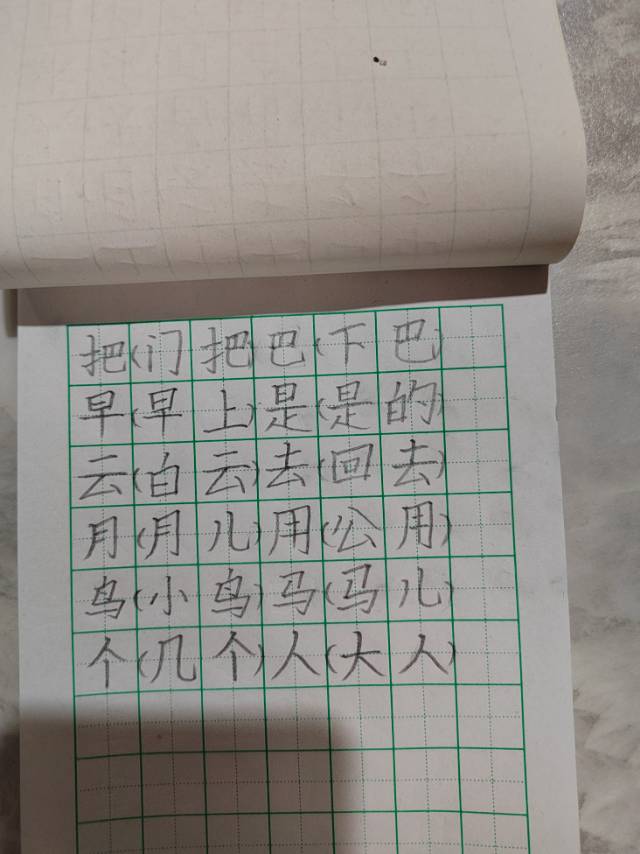 把(门把)巴(下巴)
早(早上)是(是的)
云(白云)去(回去)
月(月儿)用(公用)
鸟(小鸟)马(马儿)
个(几个)人(大人)